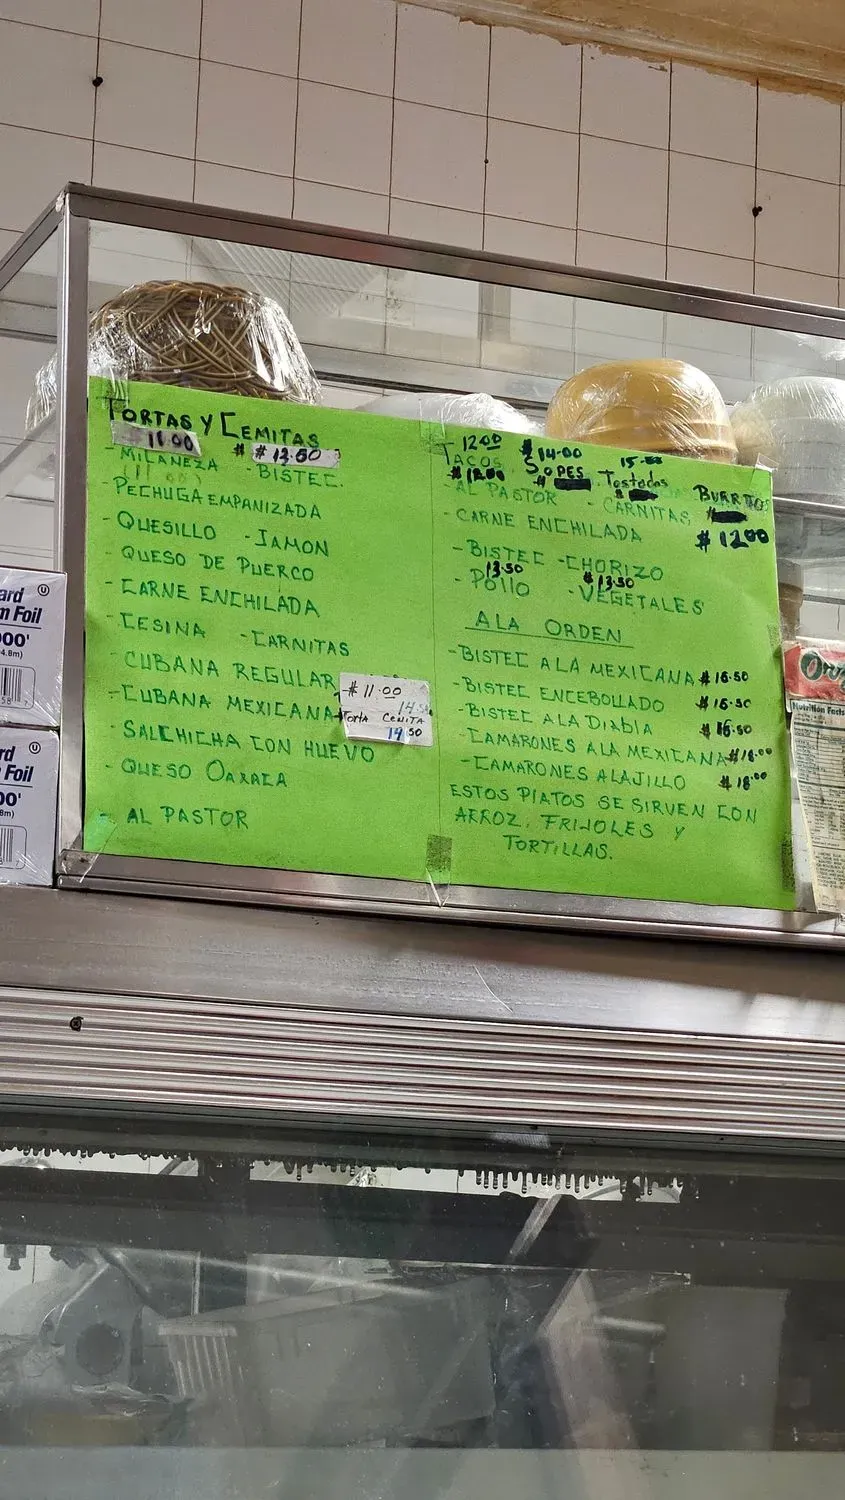 TORTAS Y CEMITAS
11.00 $ $ 12.50
- MILANEZA - BISTEC.
- PECHUGA EMPANIZADA
- QUESILLO - JAMON
- QUESO DE PUERCO
- CARNE ENCHILADA
- CESINA - CARNITAS
- CUBANA REGULAR
- $ 11.00
- CUBANA MEXICANA
Torta CEMITA
14.50
- SALCHICHA CON HUEVO
- QUESO OAXACA
- AL PASTOR
12.00 $ 14.00
TACOS SOPES Tostadas BURRITOS
$ 12.00
- AL PASTOR - CARNITAS
- CARNE ENCHILADA $ 12.00
- BISTEC - CHORIZO
13.50 $ 13.50
- POLLO - VEGETALES
A LA ORDEN
- BISTEC A LA MEXICANA $ 16.50
- BISTEC ENCEBOLLADO $ 16.50
- BISTEC A LA DIABLA $ 16.50
- CAMARONES A LA MEXICANA $ 18.00
- CAMARONES AL AJILLO $ 18.00
ESTOS PLATOS SE SIRVEN CON
ARROZ, FRIJOLES Y
TORTILLAS.
Foil
Foil
Nutrition Facts